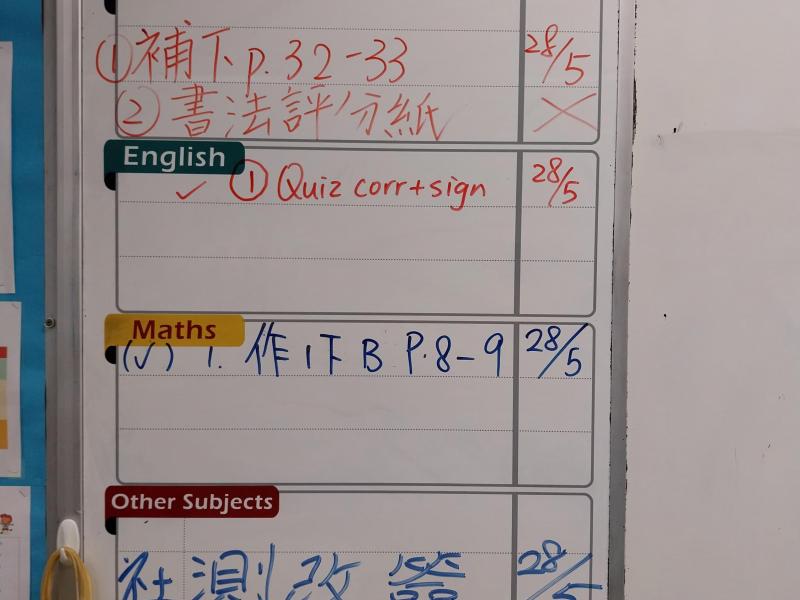 ① 補下 p. 32-33 28/5
② 書法評分紙 ×
English
✓ ① Quiz corr+sign 28/5
Maths
(✓) 1. 作1下B P.8-9 28/5
Other Subjects
社測改簽 28/5